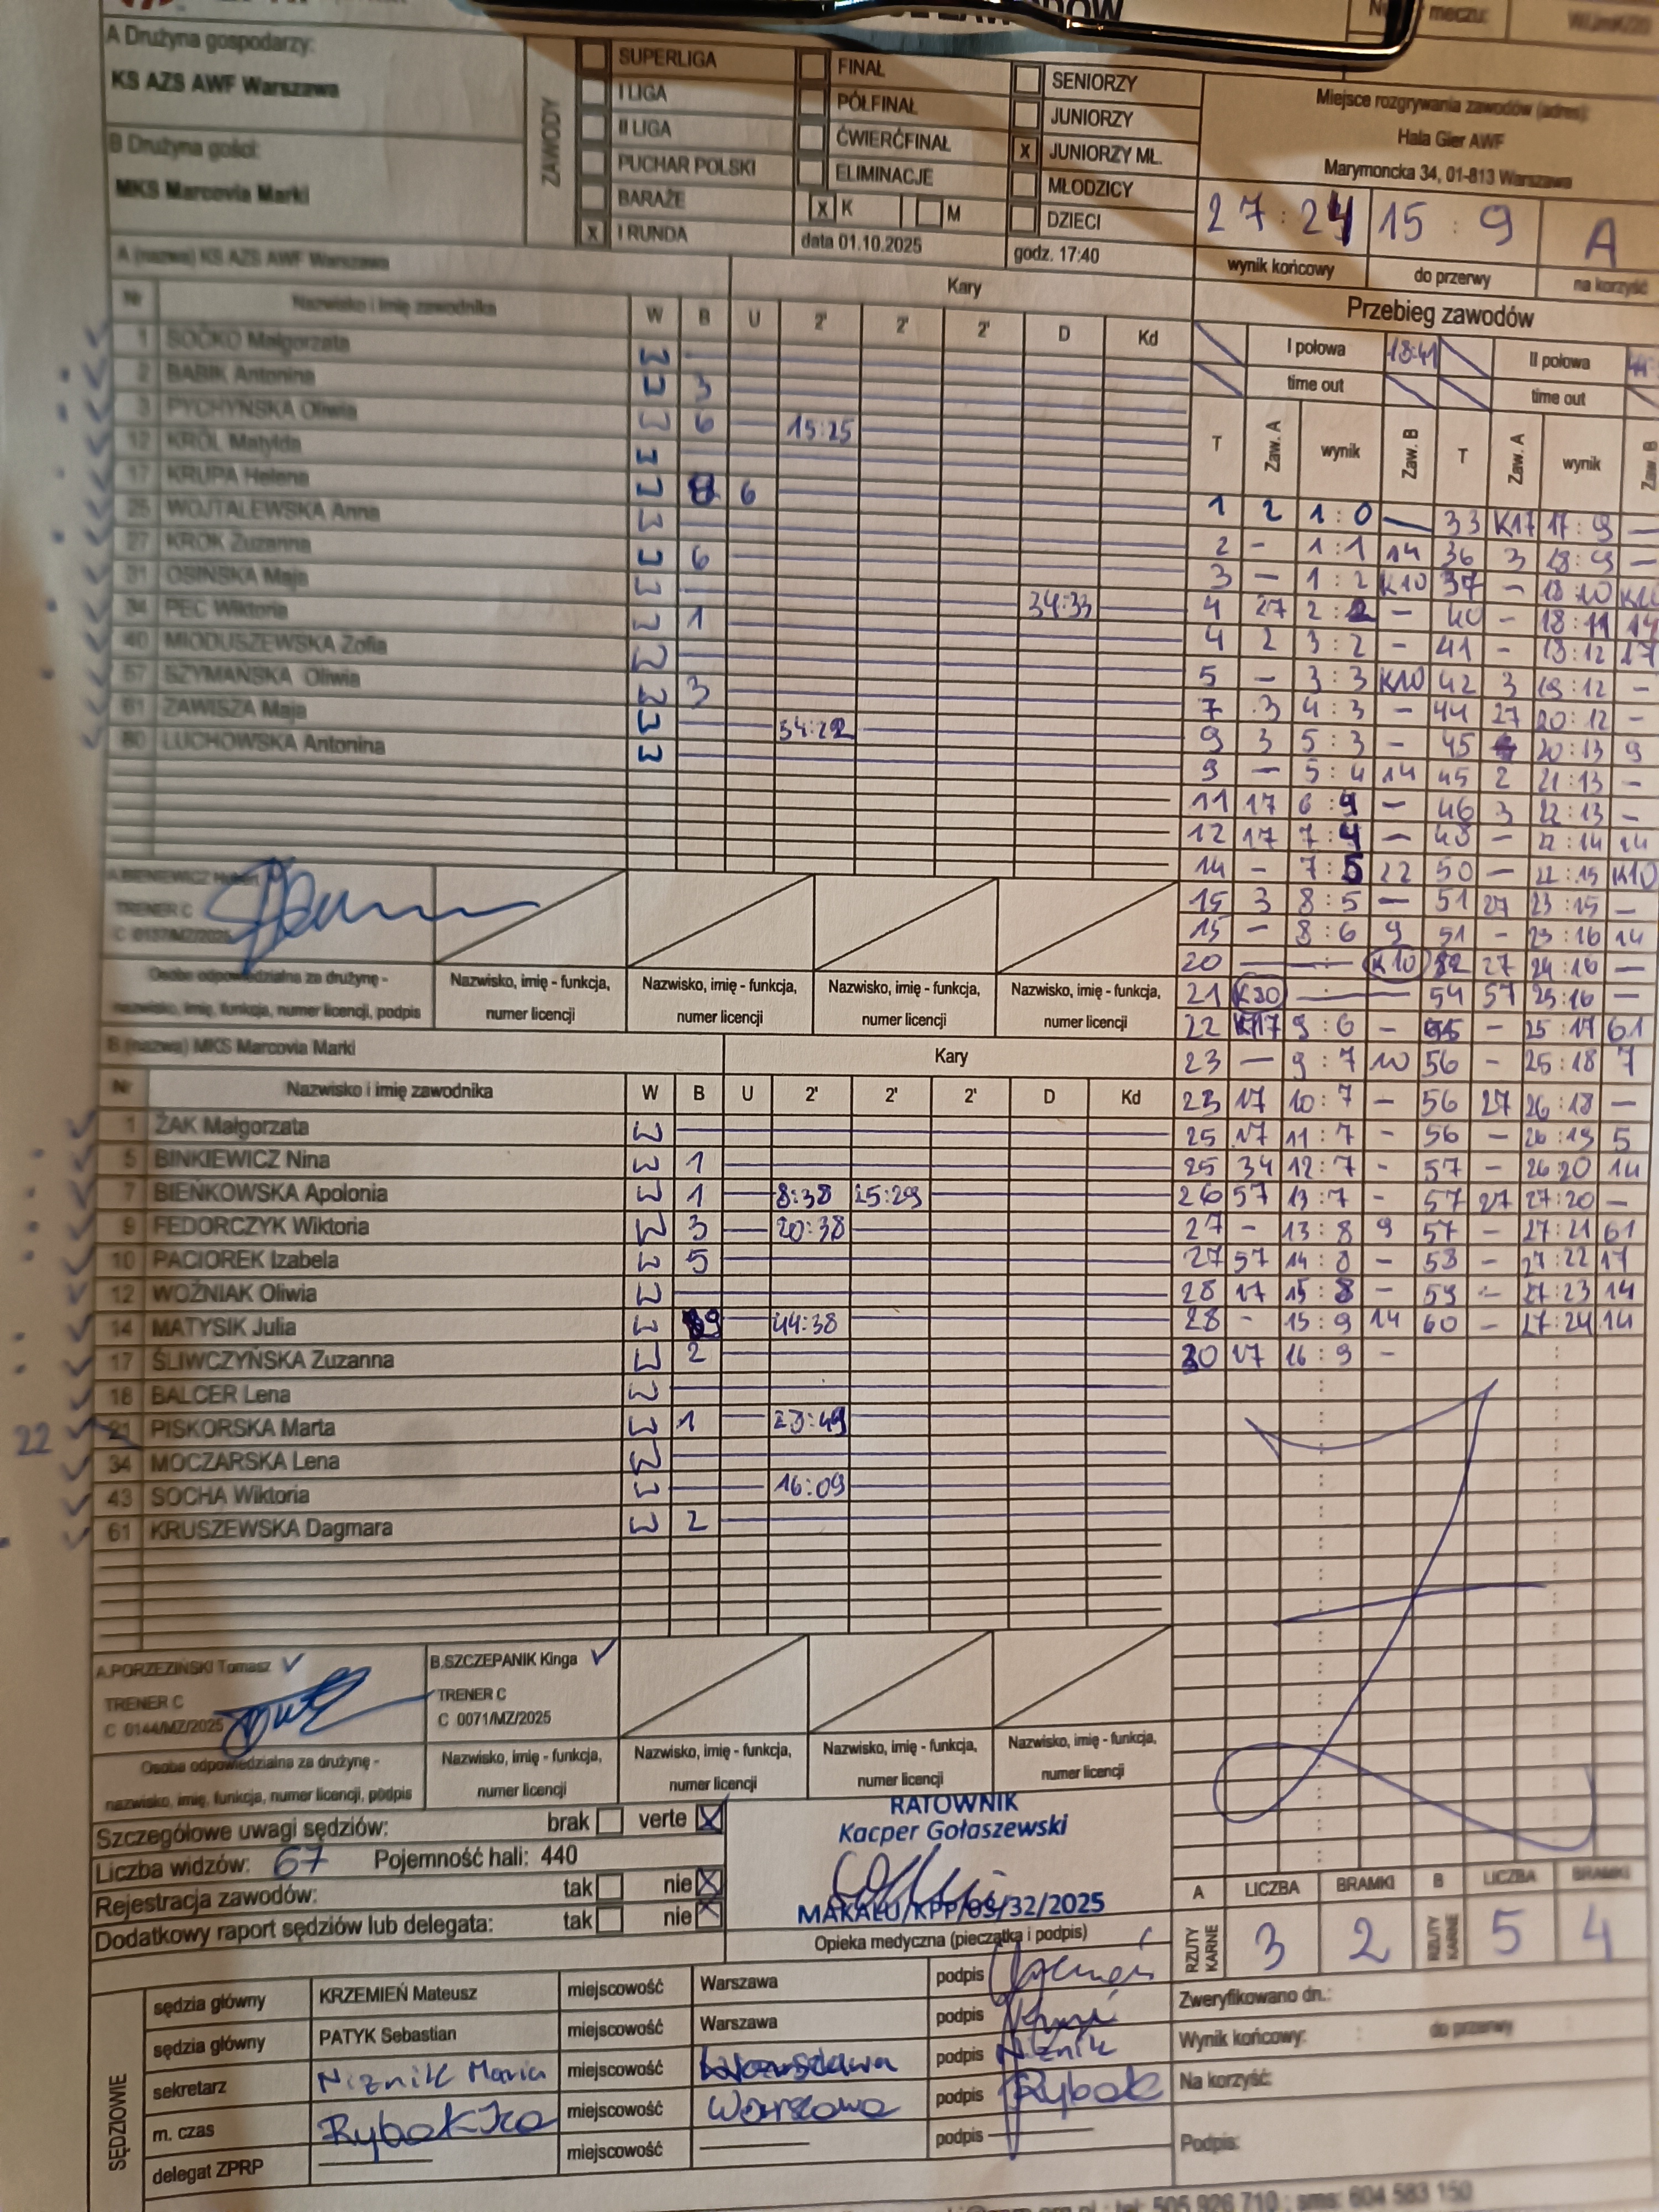 A Drużyna gospodarzy:
KS AZS AWF Warszawa
B Drużyna gości:
MKS Marcovia Marki
ZAWODY
SUPERLIGA
I LIGA
II LIGA
PUCHAR POLSKI
BARAŻE
X I RUNDA
FINAŁ
PÓŁFINAŁ
ĆWIERĆFINAŁ
ELIMINACJE
X K M
data 01.10.2025
SENIORZY
JUNIORZY
X JUNIORZY MŁ.
MŁODZICY
DZIECI
godz. 17:40
meczu:
Miejsce rozgrywania zawodów (adres):
Hala Gier AWF
Marymoncka 34, 01-813 Warszawa
27:24 15:9 A
wynik końcowy do przerwy na korzyść
A (nazwa) KS AZS AWF Warszawa
Kary
Nr Nazwisko i imię zawodnika W B U 2' 2' 2' D Kd
1 SOĆKO Małgorzata W
2 BABIK Antonina W 3
3 PYCHYŃSKA Oliwia W 6 15:25
12 KRÓL Matylda W
17 KRUPA Helena W 8 6
25 WOJTALEWSKA Anna W
27 KROK Zuzanna W 6
31 OSIŃSKA Maja W 34:33
34 PEC Wiktoria W 1
40 MIODUSZEWSKA Zofia W
57 SZYMAŃSKA Oliwia W 3
61 ZAWISZA Maja W 34:22
80 LUCHOWSKA Antonina W
A.BIENIEWICZ Hubert
TRENER C
C 0137/MZ/2025
Osoba odpowiedzialna za drużynę -
nazwisko, imię, funkcja, numer licencji, podpis
Nazwisko, imię - funkcja,
numer licencji
Nazwisko, imię - funkcja,
numer licencji
Nazwisko, imię - funkcja,
numer licencji
Nazwisko, imię - funkcja,
numer licencji
B (nazwa) MKS Marcovia Marki
Kary
Nr Nazwisko i imię zawodnika W B U 2' 2' 2' D Kd
1 ŻAK Małgorzata W
5 BINKIEWICZ Nina W 1
7 BIEŃKOWSKA Apolonia W 1 8:38 25:29
9 FEDORCZYK Wiktoria W 3 20:38
10 PACIOREK Izabela W 5
12 WOŹNIAK Oliwia W
14 MATYSIK Julia W 9 44:38
17 ŚLIWCZYŃSKA Zuzanna W 2
18 BALCER Lena W
22 21 PISKORSKA Marta W 1 23:49
34 MOCZARSKA Lena W
43 SOCHA Wiktoria W 16:09
61 KRUSZEWSKA Dagmara W 2
A.PORZEZIŃSKI Tomasz
TRENER C
C 0144/MZ/2025
Osoba odpowiedzialna za drużynę -
nazwisko, imię, funkcja, numer licencji, podpis
B.SZCZEPANIK Kinga
TRENER C
C 0071/MZ/2025
Nazwisko, imię - funkcja,
numer licencji
Nazwisko, imię - funkcja,
numer licencji
Nazwisko, imię - funkcja,
numer licencji
Nazwisko, imię - funkcja,
numer licencji
Przebieg zawodów
I połowa 18:41 II połowa
time out time out
T Zaw. A wynik Zaw. B T Zaw. A wynik Zaw. B
1 2 1:0 — 33 K17 17:9 —
2 - 1:1 14 36 3 18:9 —
3 — 1:2 K10 37 - 18:10 K10
4 27 2:2 - 40 - 18:11 14
4 2 3:2 - 41 - 18:12 17
5 - 3:3 K10 42 3 19:12 -
7 3 4:3 - 44 27 20:12 -
9 3 5:3 - 45 20:13 9
9 - 5:4 14 45 2 21:13 -
11 17 6:4 - 46 3 22:13 -
12 17 7:4 - 48 - 22:14 14
14 - 7:5 22 50 - 22:15 K10
15 3 8:5 - 51 27 23:15 —
15 - 8:6 9 51 - 23:16 14
20 — : K10 52 27 24:16 —
21 K80 — : — 54 57 25:16 —
22 K17 9:6 - 55 - 25:17 61
23 — 9:7 10 56 - 25:18 7
23 17 10:7 - 56 27 26:18 —
25 17 11:7 - 56 - 26:19 5
25 34 12:7 - 57 - 26:20 14
26 57 13:7 - 57 27 27:20 -
27 - 13:8 9 57 - 27:21 61
27 57 14:8 - 58 - 27:22 17
28 17 15:8 - 59 - 27:23 14
28 - 15:9 14 60 - 27:24 14
30 17 16:9 -
Szczegółowe uwagi sędziów: brak verte X
Liczba widzów: 67 Pojemność hali: 440
Rejestracja zawodów: tak nie X
Dodatkowy raport sędziów lub delegata: tak nie X
RATOWNIK
Kacper Gołaszewski
MAKALU/KPP/OS/32/2025
Opieka medyczna (pieczątka i podpis)
A LICZBA BRAMKI B LICZBA BRAMKI
RZUTY KARNE 3 2 RZUTY KARNE 5 4
SĘDZIOWIE
sędzia główny KRZEMIEŃ Mateusz miejscowość Warszawa podpis
sędzia główny PATYK Sebastian miejscowość Warszawa podpis
sekretarz Niznik Maria miejscowość Warszawa podpis Niznik
m. czas Rybak Iza miejscowość Warszawa podpis Rybak
delegat ZPRP miejscowość podpis
Zweryfikowano dn.:
Wynik końcowy: : do przerwy :
Na korzyść:
Podpis:
tel: 505 926 710 ; sms: 604 583 150